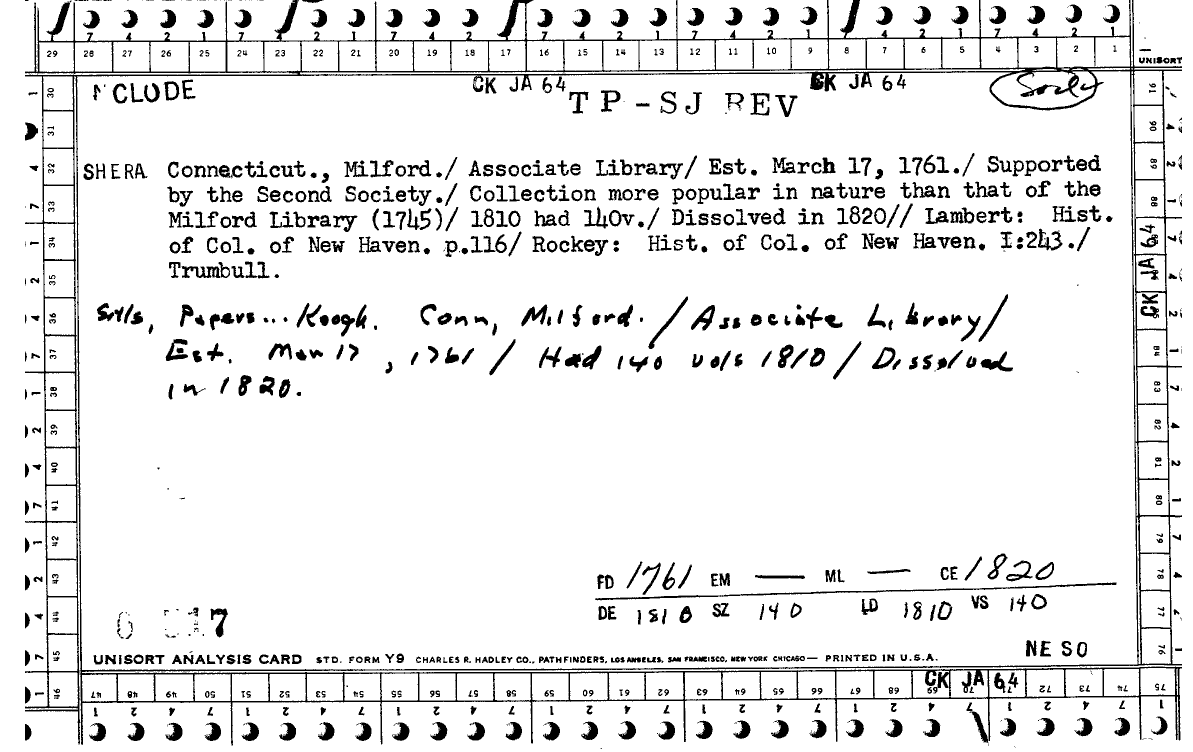 7 4 2 1 7 4 2 1 7 4 2 1 7 4 2 1 7 4 2 1 7 4 2 1
29 28 27 26 25 24 23 22 21 20 19 18 17 16 15 14 13 12 11 10 9 8 7 6 5 4 3 2 1
UNISORT
CK JA 64 CK JA 64
NCLUDE TP-SJ REV
SHERA Connecticut., Milford./ Associate Library/ Est. March 17, 1761./ Supported
by the Second Society./ Collection more popular in nature than that of the
Milford Library (1745)/ 1810 had 140v./ Dissolved in 1820// Lambert: Hist.
of Col. of New Haven. p.116/ Rockey: Hist. of Col. of New Haven. I:243./
Trumbull.
Papers... Keogh. Conn, Milford. / Associate Library/
Est. Mar 17, 1761 / Had 140 vols 1810 / Dissolved
in 1820.
CK JA 64
FD 1761 EM — ML — CE 1820
DE 1810 SZ 140 LD 1810 VS 140
7
NE SO
UNISORT ANALYSIS CARD STD. FORM Y9 CHARLES R. HADLEY CO., PATHFINDERS, LOS ANGELES, SAN FRANCISCO, NEW YORK CHICAGO— PRINTED IN U.S.A.
CK JA 64
30 31 32 33 34 35 36 37 38 39 40 41 42 43 44 45 46
47 48 49 50 51 52 53 54 55 56 57 58 59 60 61 62 63 64 65 66 67 68 69 70 71 72 73 74 75
91 90 89 88 85 84 83 82 81 80 79 78 77 76